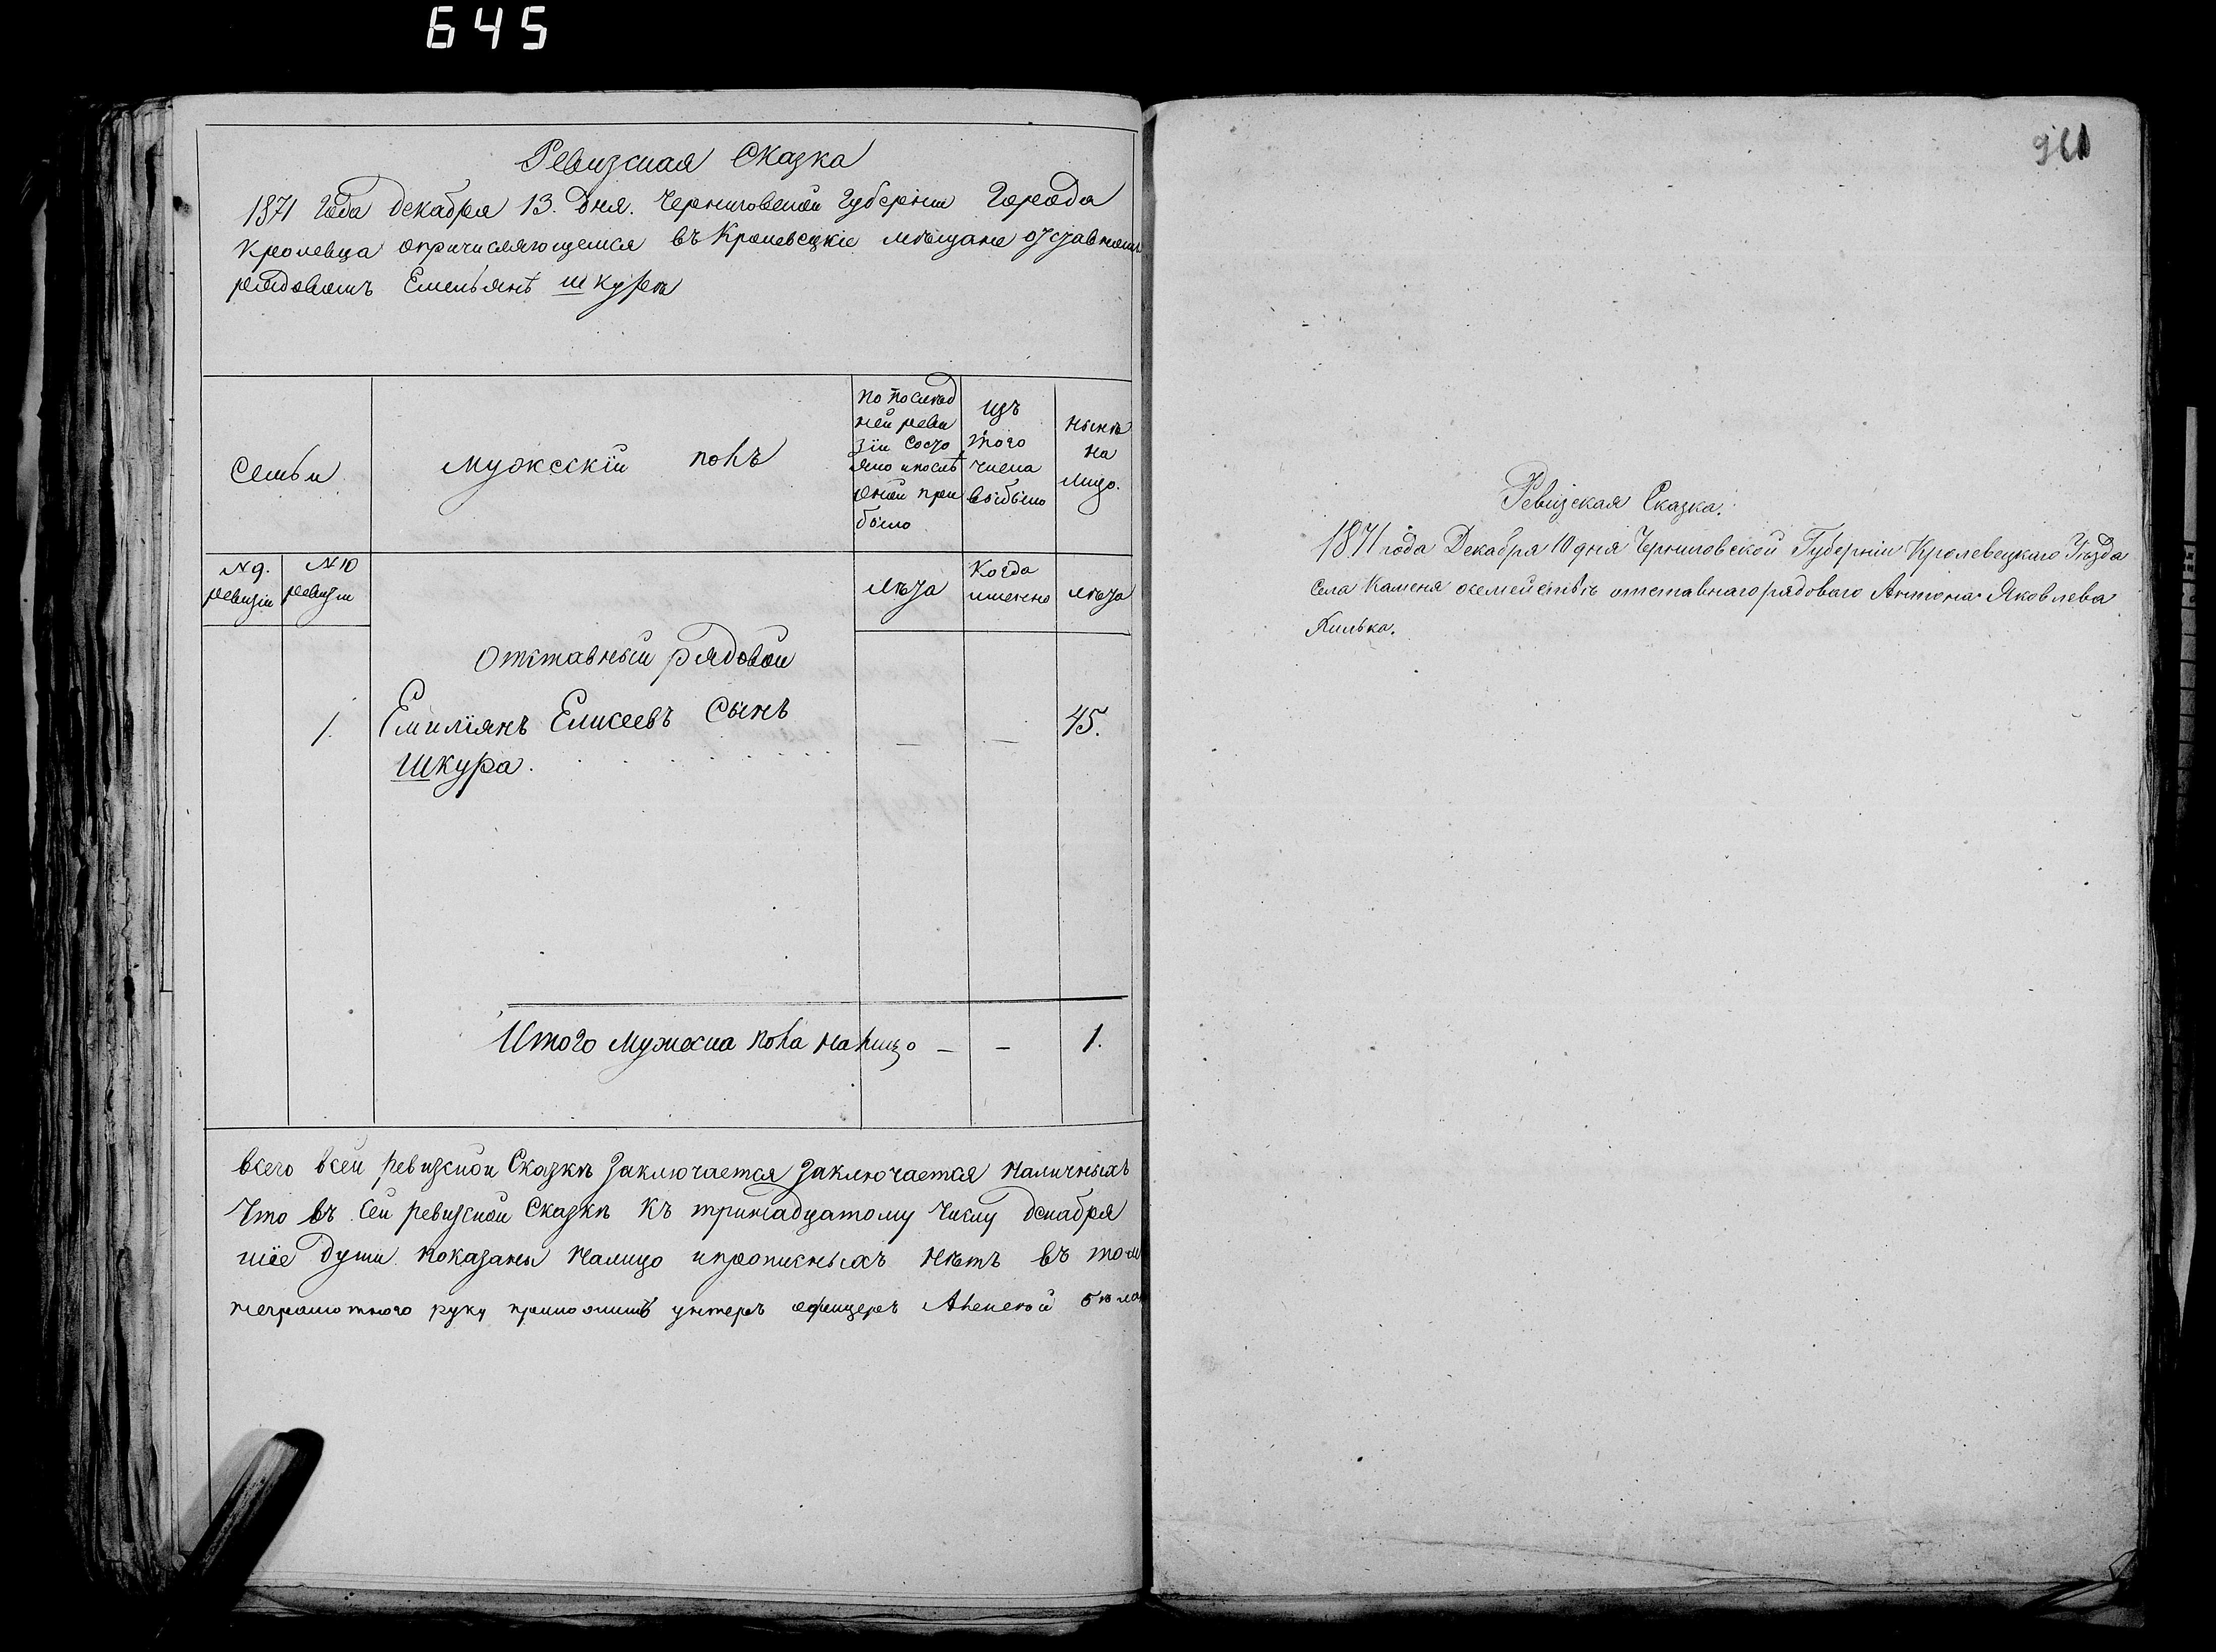 645
Ревизская Сказка
1871 Года декабря 13. Дня. Черниговской Губерніи Города
Кролевца опричисляющемся въ Кролевецкіе мѣщане отставномъ
рядовомъ Емельянѣ Шкурѣ
Семьи
Мужескій полъ
По послѣд
ней реви
зіи состо
яло и послѣ
оной при
было
изъ
того
числа
выбыло
нынѣ
на
лицо.
№ 9.
ревизіи
№ 10
ревизіи
лѣта
Когда
именно
лѣта
Отставный рядовой
1. Емиліянъ Елисеевъ Сынъ — — 45.
Шкура.
Итого мужска пола налицо — — 1.
всего всей ревизской Сказкѣ заключается заключается наличныхъ
Что въ сей ревизской Сказкѣ къ тринадцатому числу декабря
шіе души показаны налицо и прописныхъ нѣтъ въ том
неграмотного руку приложилъ унтеръ офицеръ Алексѣй
961
Ревизская Сказка.
1871 года Декабря 10 дня Черниговской Губерніи Кролевецкаго Уѣзда
Села Каменя осемействѣ отставнаго рядоваго Антона Яковлева